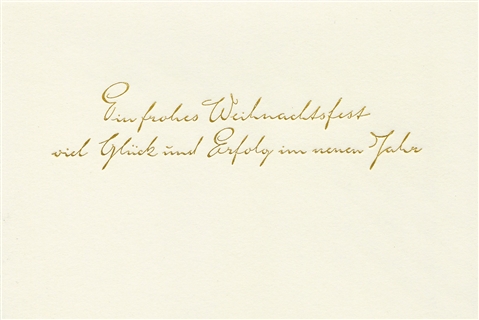 Ein frohes Weihnachtsfest
viel Glück und Erfolg im neuen Jahr